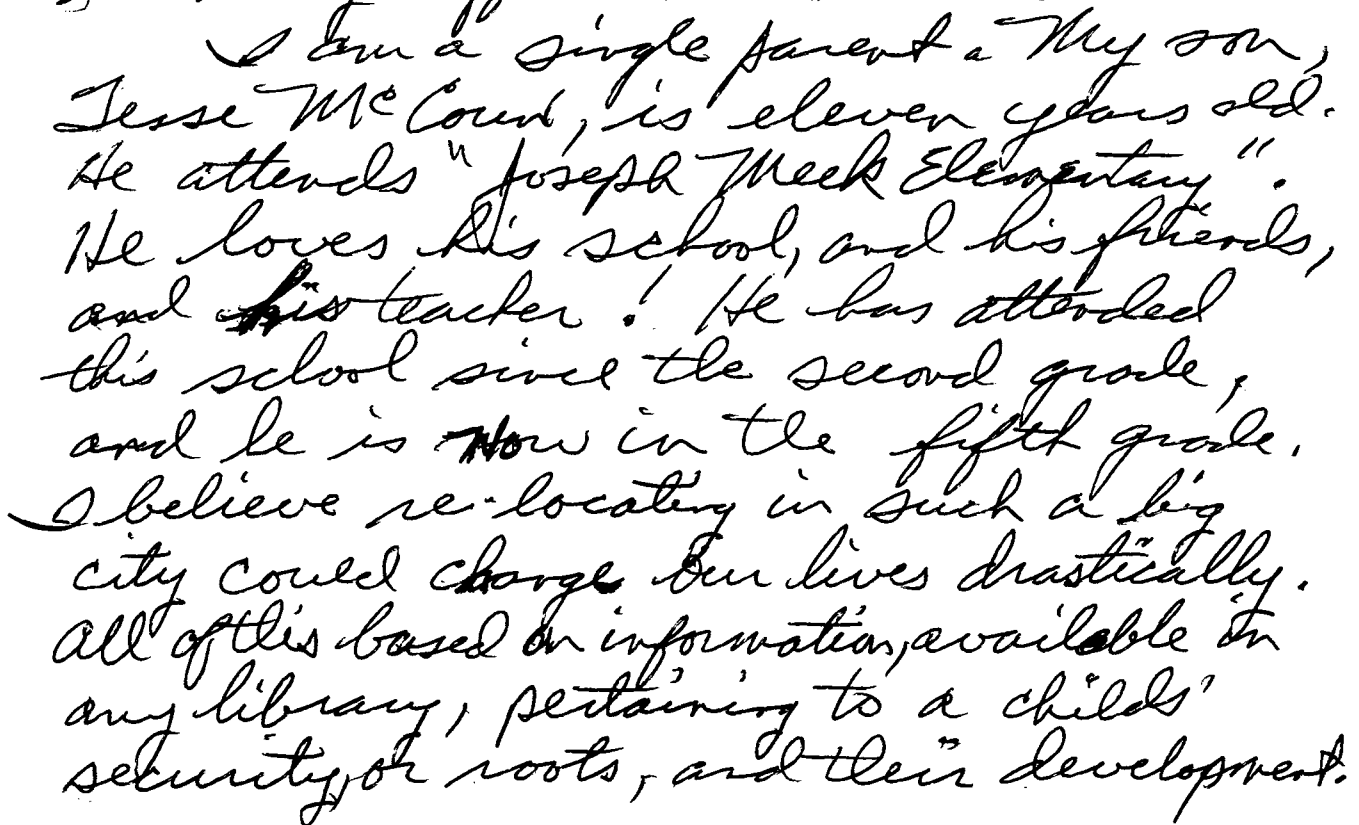 I am a single parent. My son,
Jesse McCourt, is eleven years old.
He attends "Joseph Meek Elementary".
He loves his school, and his friends,
and his teacher! He has attended
this school since the second grade,
and he is now in the fifth grade.
I believe re-locating in such a big
city could change our lives drastically.
All of this based on information, available in
any library, pertaining to a childs'
security, or roots, and their development.